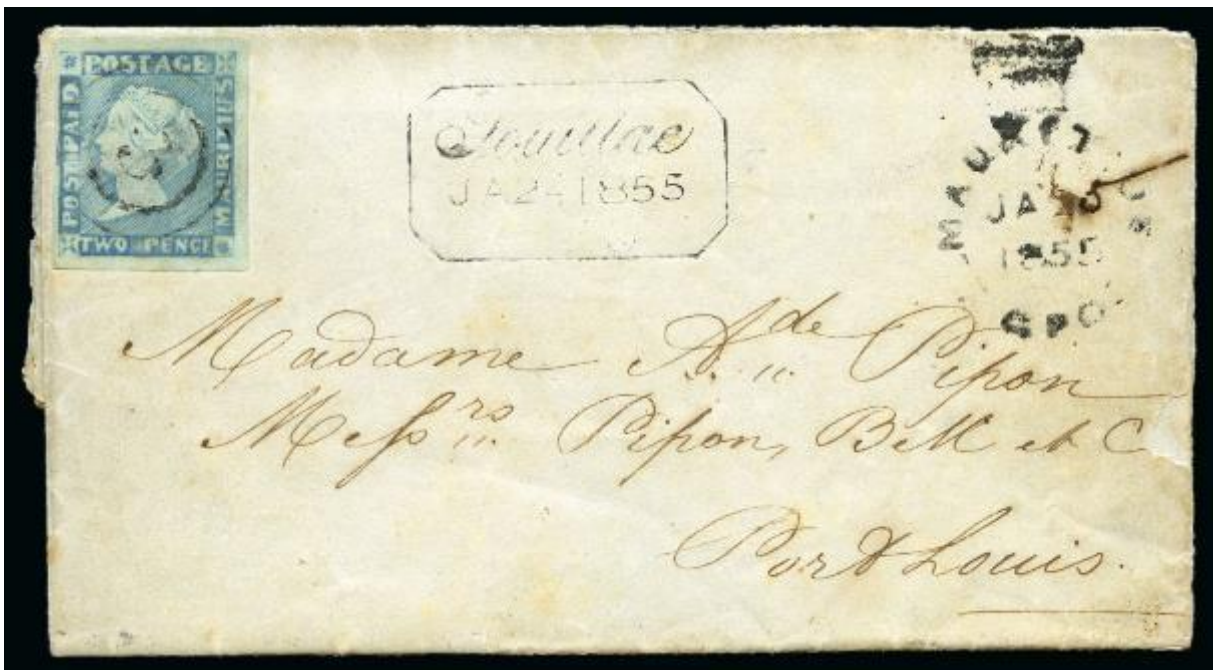 POSTAGE
POST PAID
MAURITIUS
TWO PENCE
Souillac
JA 24 1855
MAURITIUS
JA 25
1855
GPO
Madame A.de Pipon
Messrs Pipon, Bell et C
Port Louis.